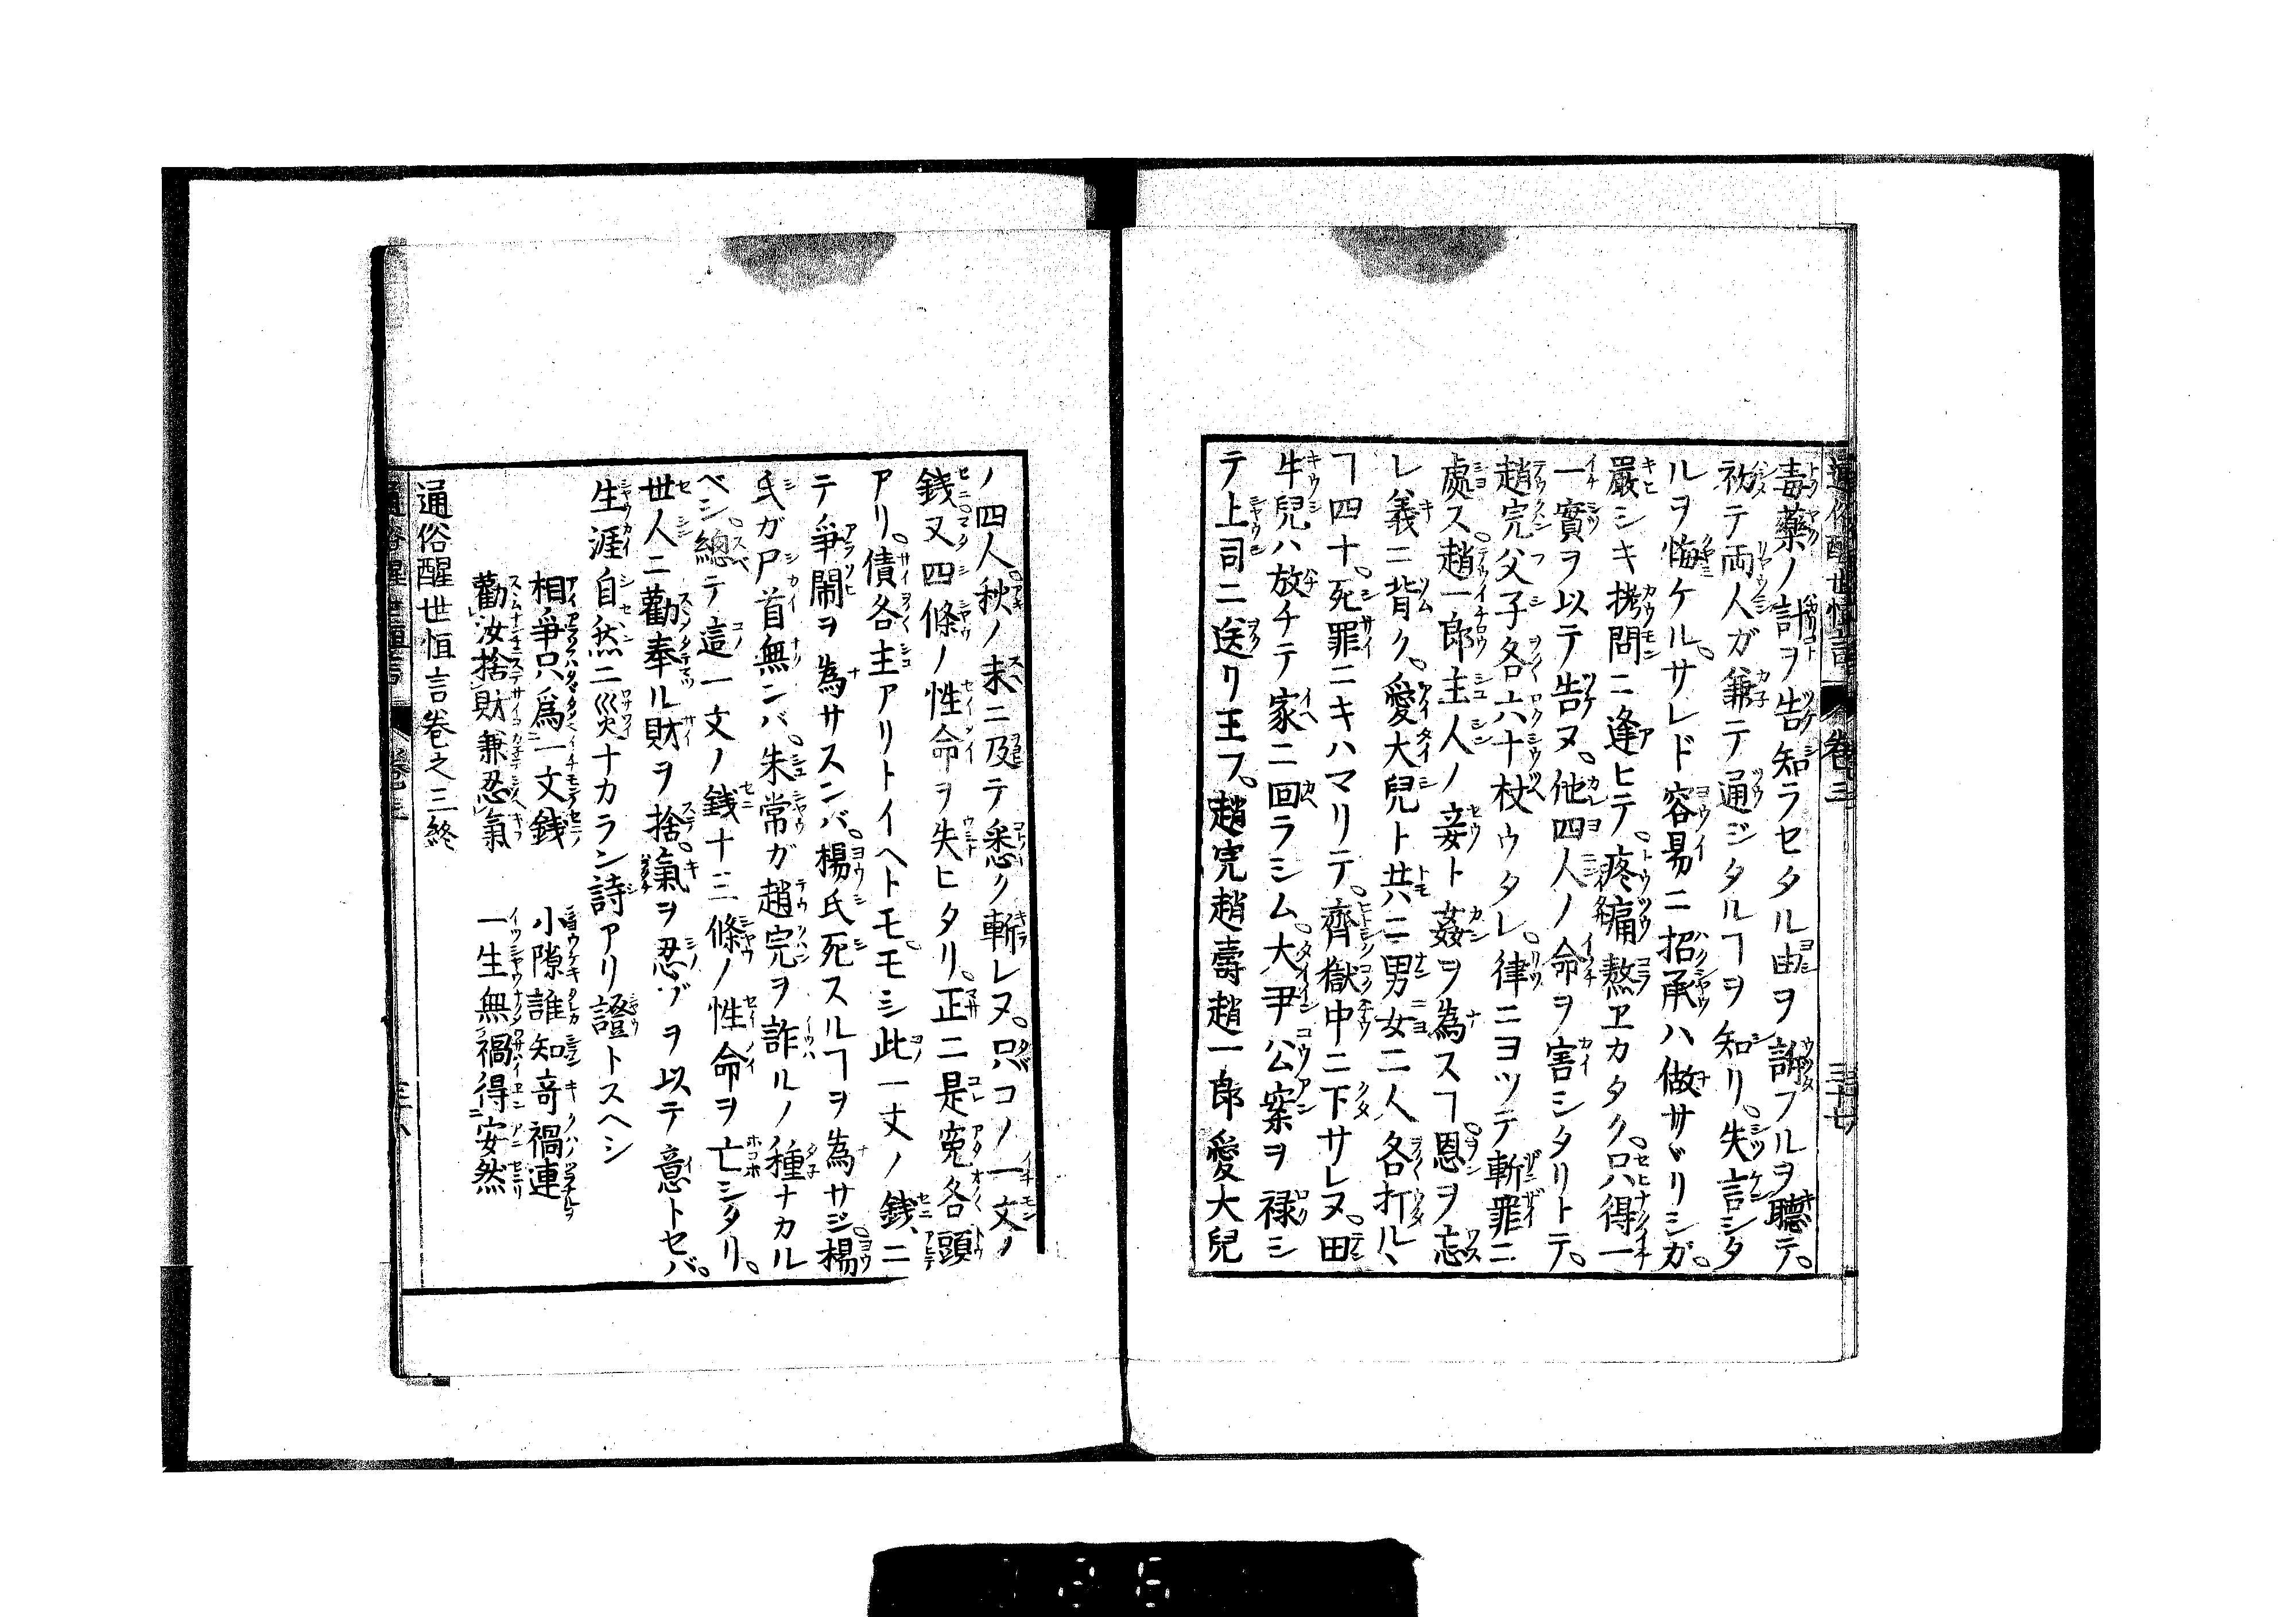 毒藥ノ計ヲ告知ラセタル由ヲ訴フルヲ聽テ。
初テ兩人ガ兼テ通ジタルヿヲ知リ。失言シタ
ルヲ悔ケル。サレド容易ニ招承ハ做サヾリシガ。
嚴シキ拷問ニ逢ヒテ。疼痛熬ヱカタク。只得一
一實ヲ以テ告ヌ。他四人ノ命ヲ害シタリトテ。
趙完父子各六十杖ウタレ。律ニヨツテ斬罪ニ
處ス。趙一郎主人ノ妾ト姦ヲ為スヿ。恩ヲ忘
レ義ニ背ク。愛大兒ト共ニ男女二人各打ルヽ
ヿ四十。死罪ニキハマリテ。齊獄中ニ下サレヌ。田
牛兒ハ放チテ家ニ回ラシム。大尹公案ヲ禄シ
テ上司ニ送リ玉フ。趙完趙壽趙一郎愛大兒
ノ四人。秋ノ末ニ及テ悉ク斬レヌ。只コノ一文ノ
錢又四條ノ性命ヲ失ヒタリ。正ニ是寃各頭
アリ。債各主アリトイヘトモ。モシ此一文ノ錢、ニ
テノ爭鬧ヲ為サスンバ。楊氏死スルヿヲ為サジ。楊
氏ガ尸首無ンバ。朱常ガ趙完ヲ詐ルノ種ナカル
ベシ。總テ這一文ノ錢十三條ノ性命ヲ亡シタリ。
世人ニ勸奉ル財ヲ捨。氣ヲ忍ブヲ以テ意トセバ。
生涯自然ニ災ナカラン詩アリ證トスヘシ
相爭只爲一文錢 小隙誰知竒禍連
勸汝捨財兼忍氣 一生無禍得安然
通俗醒世恒言卷之三終